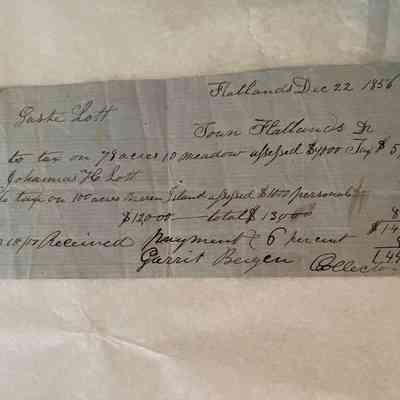 Flatlands Dec 22 1856
Lott
Town Flatlands Dr
to tax on 78 acres 10 meadow assessed Tax $ 5
Johannas H Lott
to tax on 100 acres Barren Island assessed $1000 personal
$12000 total $13000 8
$14
Received payment 6 percent
Garrit Bergen Collector